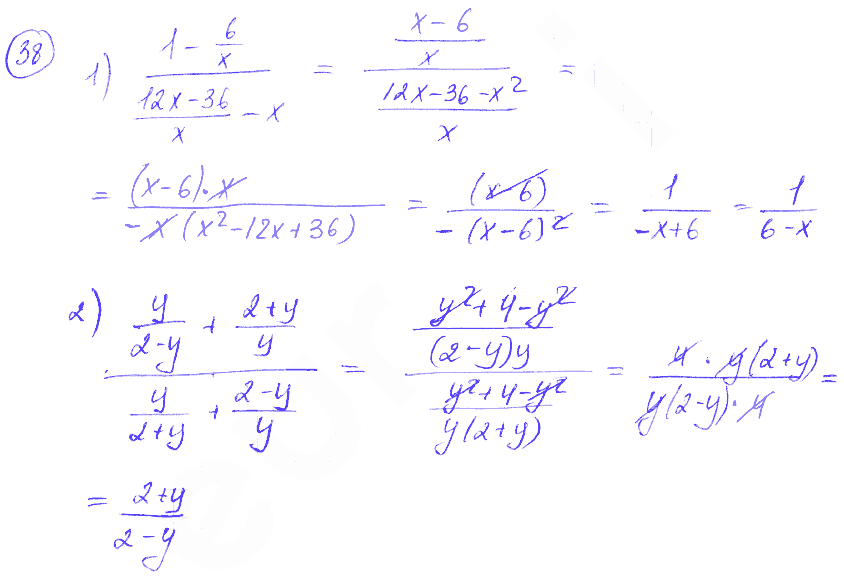 38
1) (1 - 6/x) / ((12x-36)/x - x) = ((x-6)/x) / ((12x-36-x²)/x) =
= ((x-6)·x) / (-x(x²-12x+36)) = (x-6) / (-(x-6)²) = 1/(-x+6) = 1/(6-x)
2) (y/(2-y) + (2+y)/y) / (y/(2+y) + (2-y)/y) = ((y²+4-y²)/((2-y)y)) / ((y²+4-y²)/(y(2+y))) = (4·y(2+y)) / (y(2-y)·4) =
= (2+y)/(2-y)